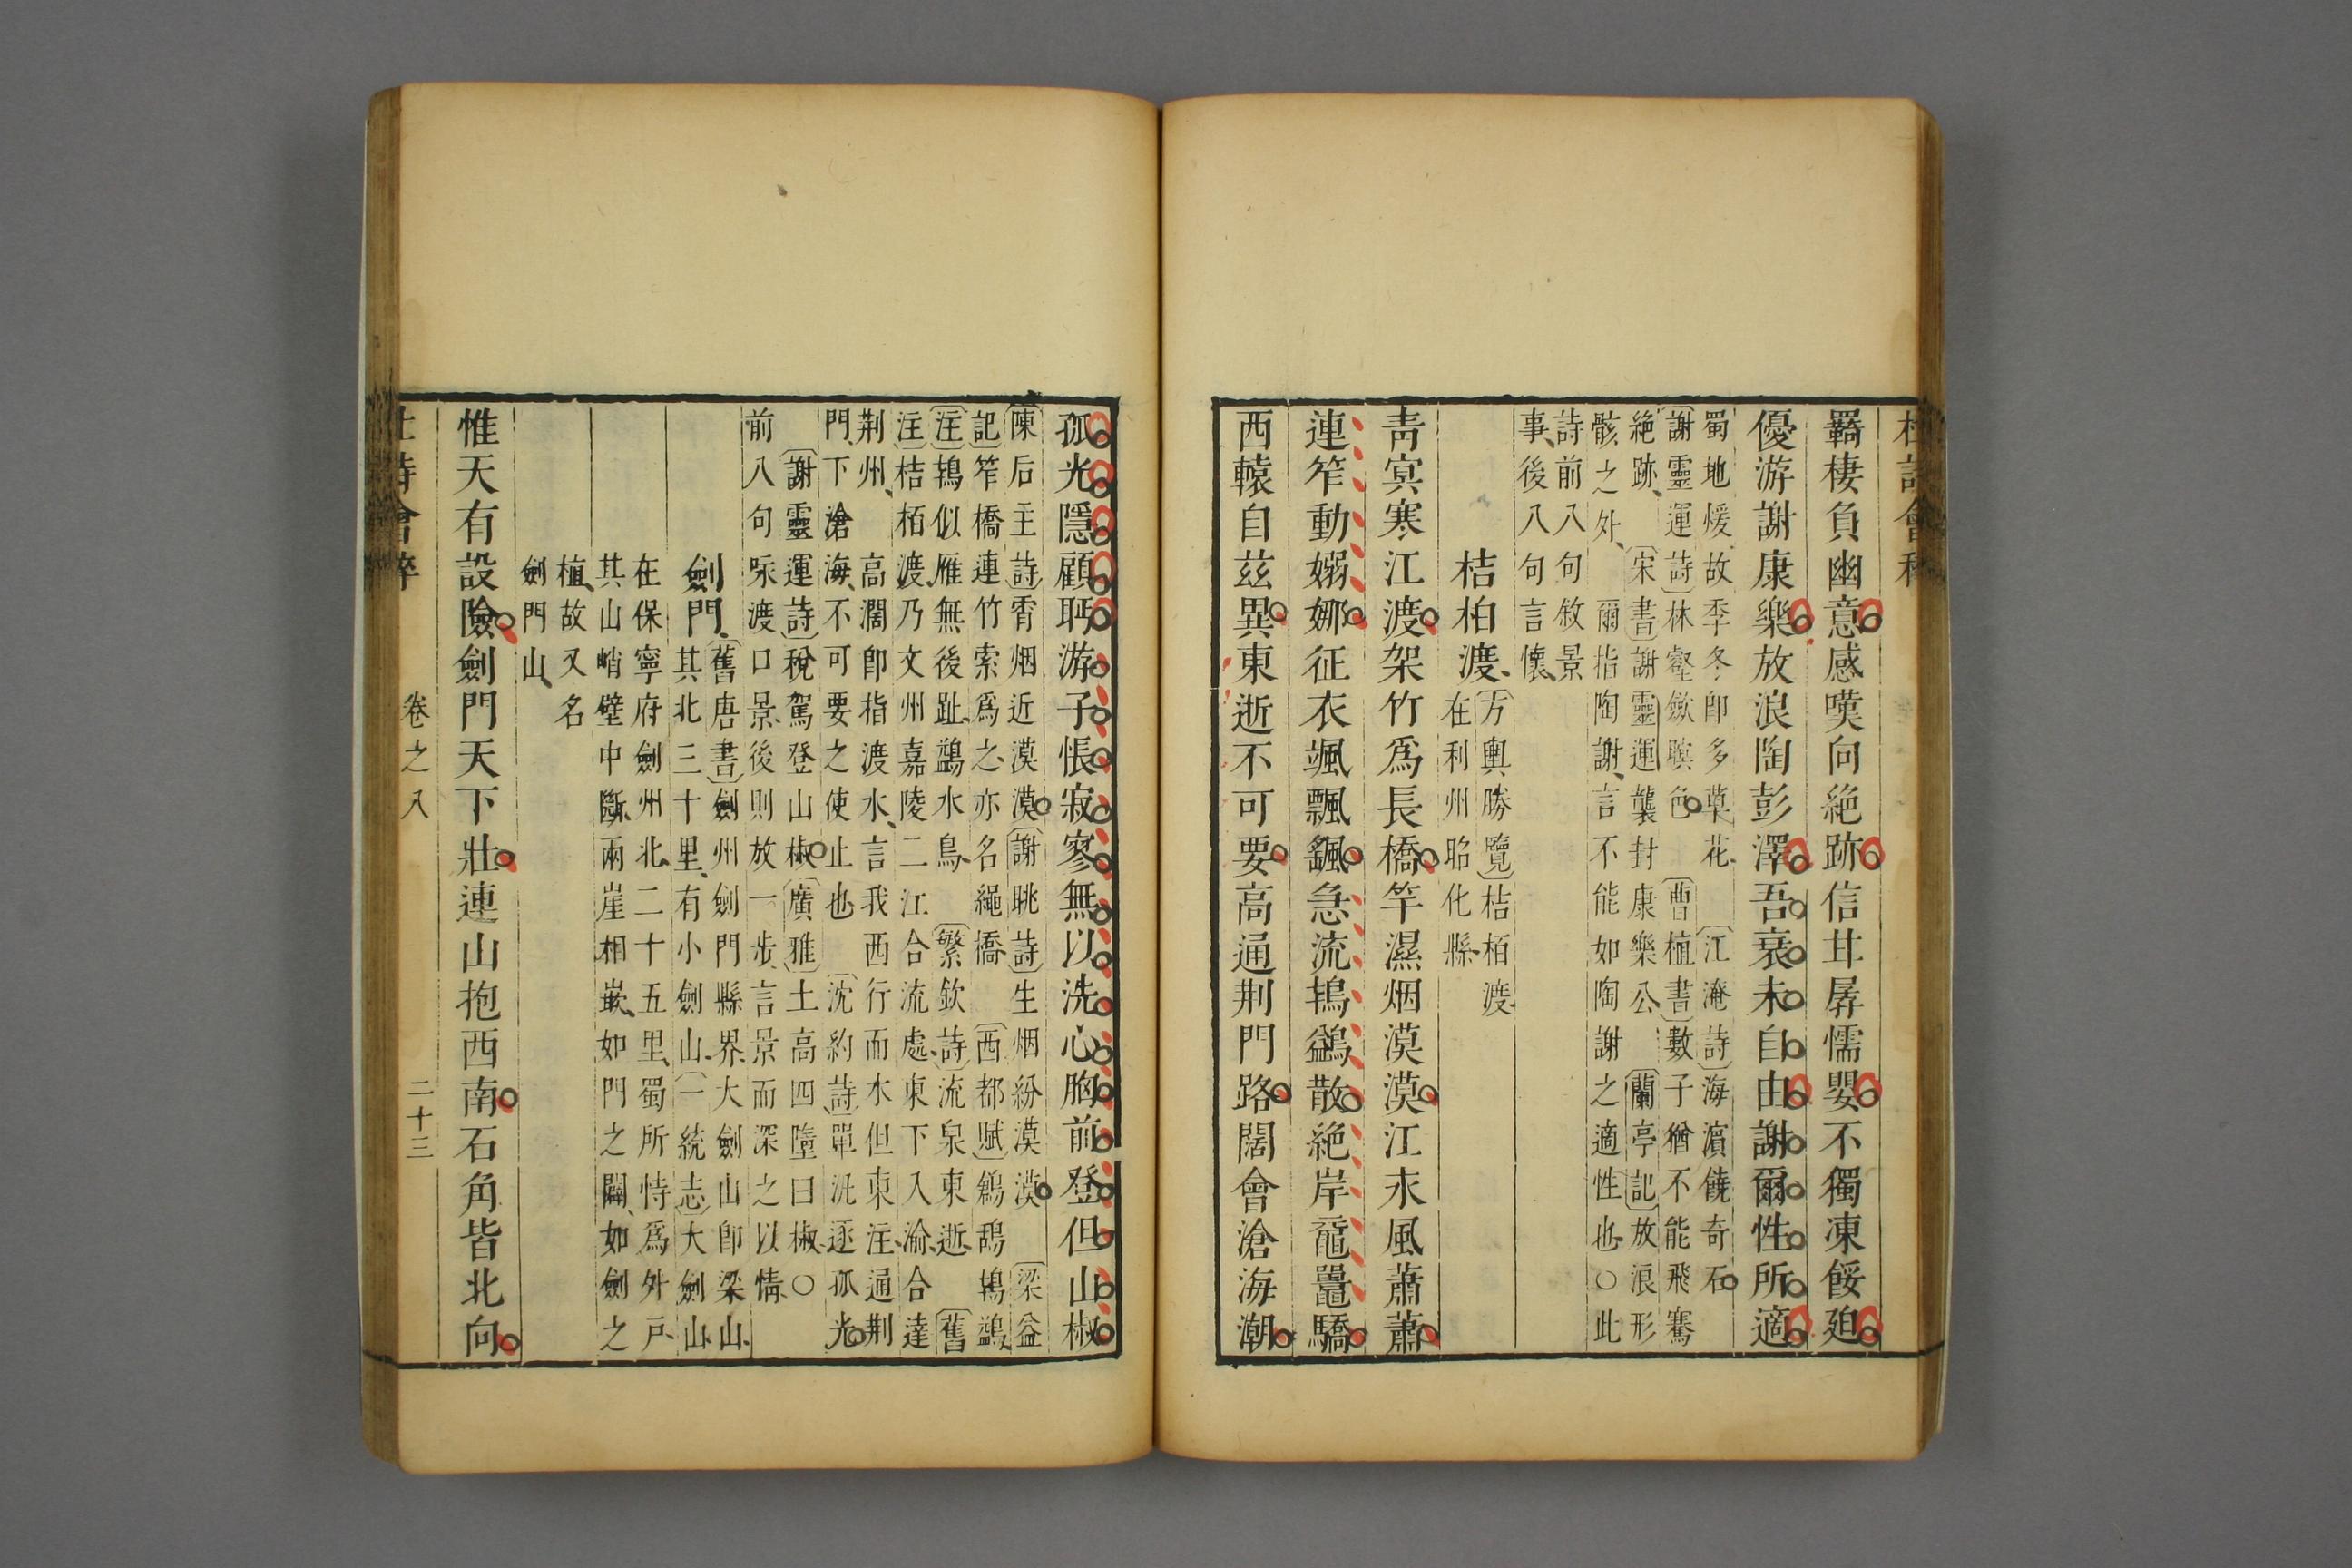 杜詩會稡
羈棲負幽意感嘆向絶跡信甘孱懦嬰不獨凍餒廹
優游謝康樂放浪陶彭澤吾衰未自由謝爾性所適
蜀地煖故季冬卽多草花 〔江淹詩〕海濵饒奇石
〔謝靈運詩〕林壑斂暝色 〔曹植書〕數子猶不能飛騫
絶跡 〔宋書〕謝靈運襲封康樂公 〔蘭亭記〕放浪形
骸之外 爾指陶謝言不能如陶謝之適性也○此
詩前八句敘景
事後八句言懷
桔柏渡
〔方輿勝覽〕桔栢渡
在利州昭化縣
靑㝠寒江渡架竹爲長橋竿濕烟漠漠江永風蕭蕭
連笮動嫋娜征衣颯飄颻急流鴇鷁散絶岸黿鼉驕
西轅自茲異東逝不可要高通荆門路闊會滄海潮
孤光隱顧眄游子悵寂寥無以洗心胸前登但山椒
〔陳后主詩〕霄烟近漠漠 〔謝眺詩〕生烟紛漠漠 〔梁益
記〕笮橋連竹索爲之亦名繩橋 〔西都賦〕鶬鴰鴇鷁
〔注〕鴇似雁無後趾鷁水鳥 〔繁欽詩〕流泉東逝 〔舊
注〕桔栢渡乃文州嘉陵二江合流處東下入渝合達
荆州 高濶卽指渡水言我西行而水但東注通荆
門下滄海不可要之使止也 〔沈約詩〕單汎逐孤光
〔謝靈運詩〕稅駕登山椒 〔廣雅〕土高四墮曰椒○
前八句咏渡口景後則放一步言景而深之以情
劍門
〔舊唐書〕劍州劍門縣界大劍山卽梁山
其北三十里有小劍山〔一統志〕大劍山
在保寧府劍州北二十五里蜀所恃爲外戶
其山峭壁中斷兩崖相嶔如門之闢如劍之
植故又名
劍門山
惟天有設險劍門天下壯連山抱西南石角皆北向
杜詩會稡 卷之八 二十三